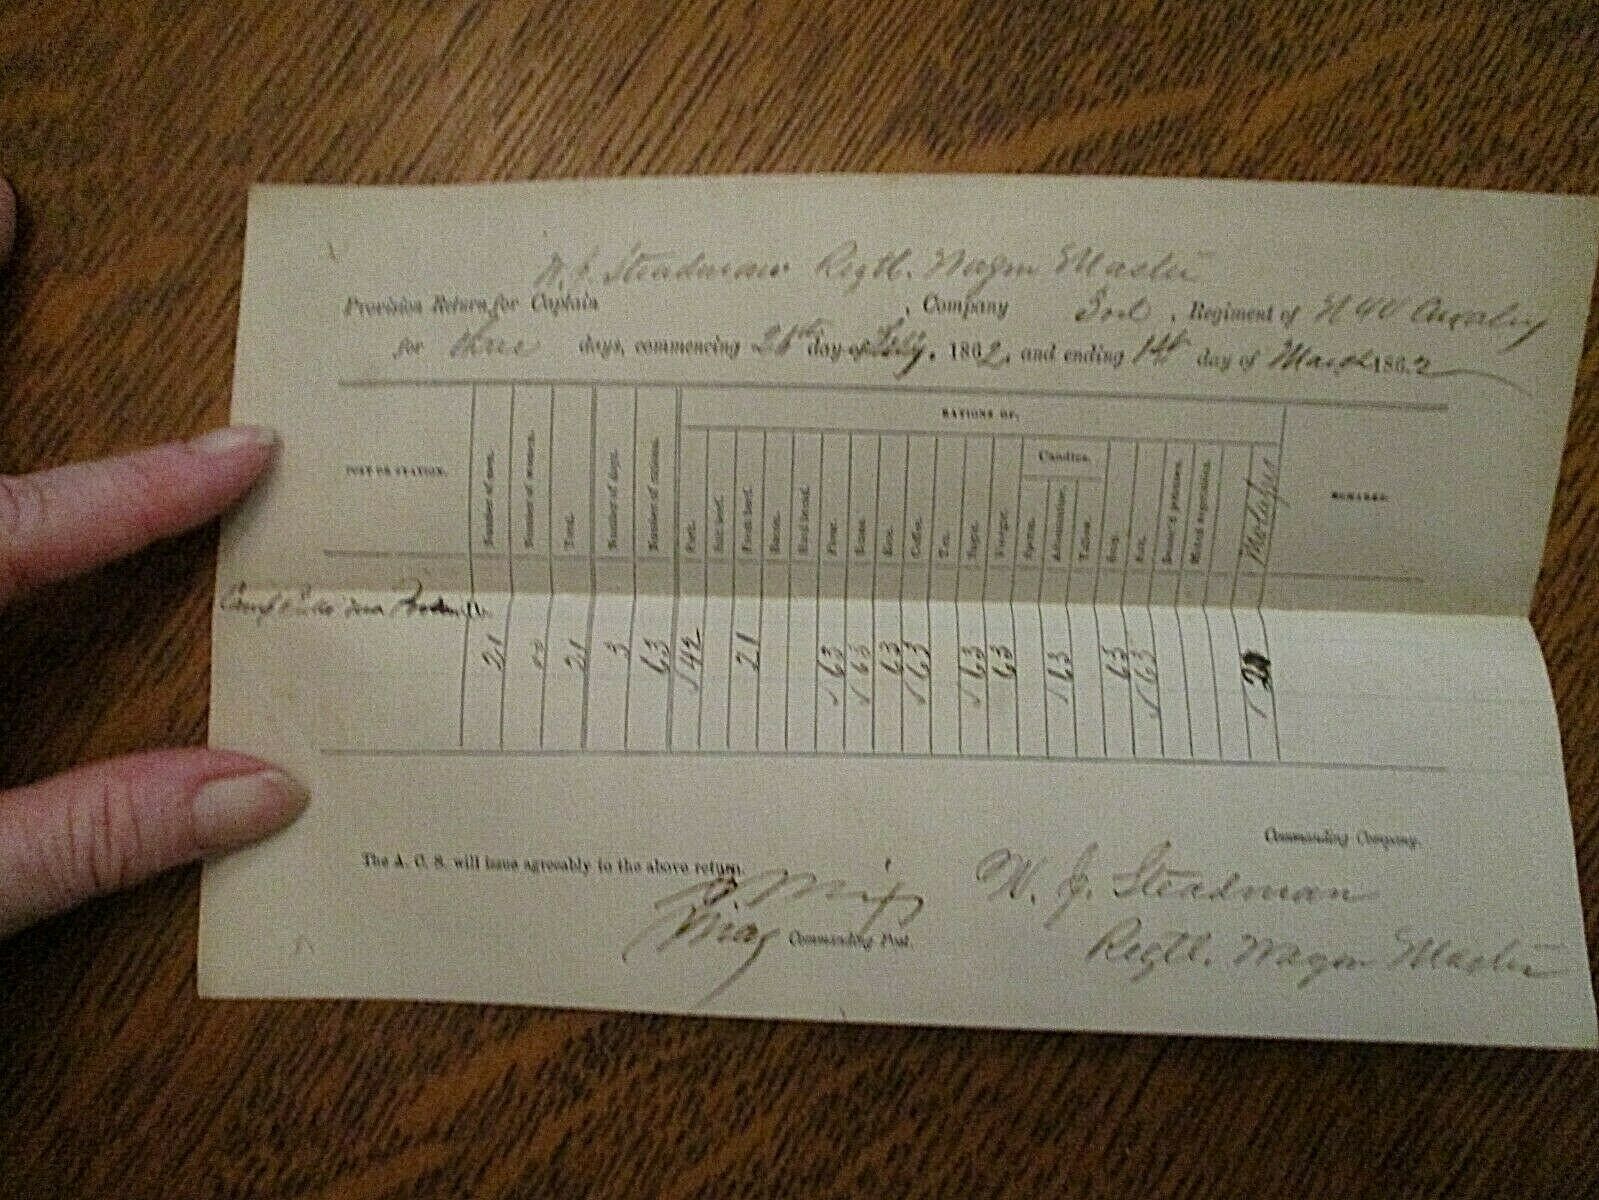 W. J. Steadman Regtl. Wagon Master
Provision Return for Captain , Company 3rd , Regiment of N Y V Cavalry
for three days, commencing day of Feby. 1862, and ending 1st day of March 1862
RATIONS OF.
POST OR STATION. Number of men. Number of women. Total. Number of days. Number of rations. Pork. Salt beef. Fresh beef. Bacon. Hard bread. Flour. Beans. Rice. Coffee. Tea. Sugar. Vinegar. Candles. Sperm. Adamantine. Tallow. Soap. Salt. Desicc'd potatoes. Mixed vegetables. Molasses REMARKS.
Camp
21 00 21 3 63 42 21 63 63 63 63 63 63 63 63 63
Commanding Company.
The A. C. S. will issue agreeably to the above return.
W. J. Steadman
Regtl. Wagon Master
S. Mix
Maj Commanding Post.